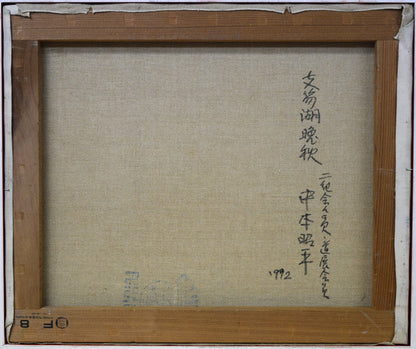 支笏湖晩秋
二紀会会員・道展会員
中本昭平
1992
F8